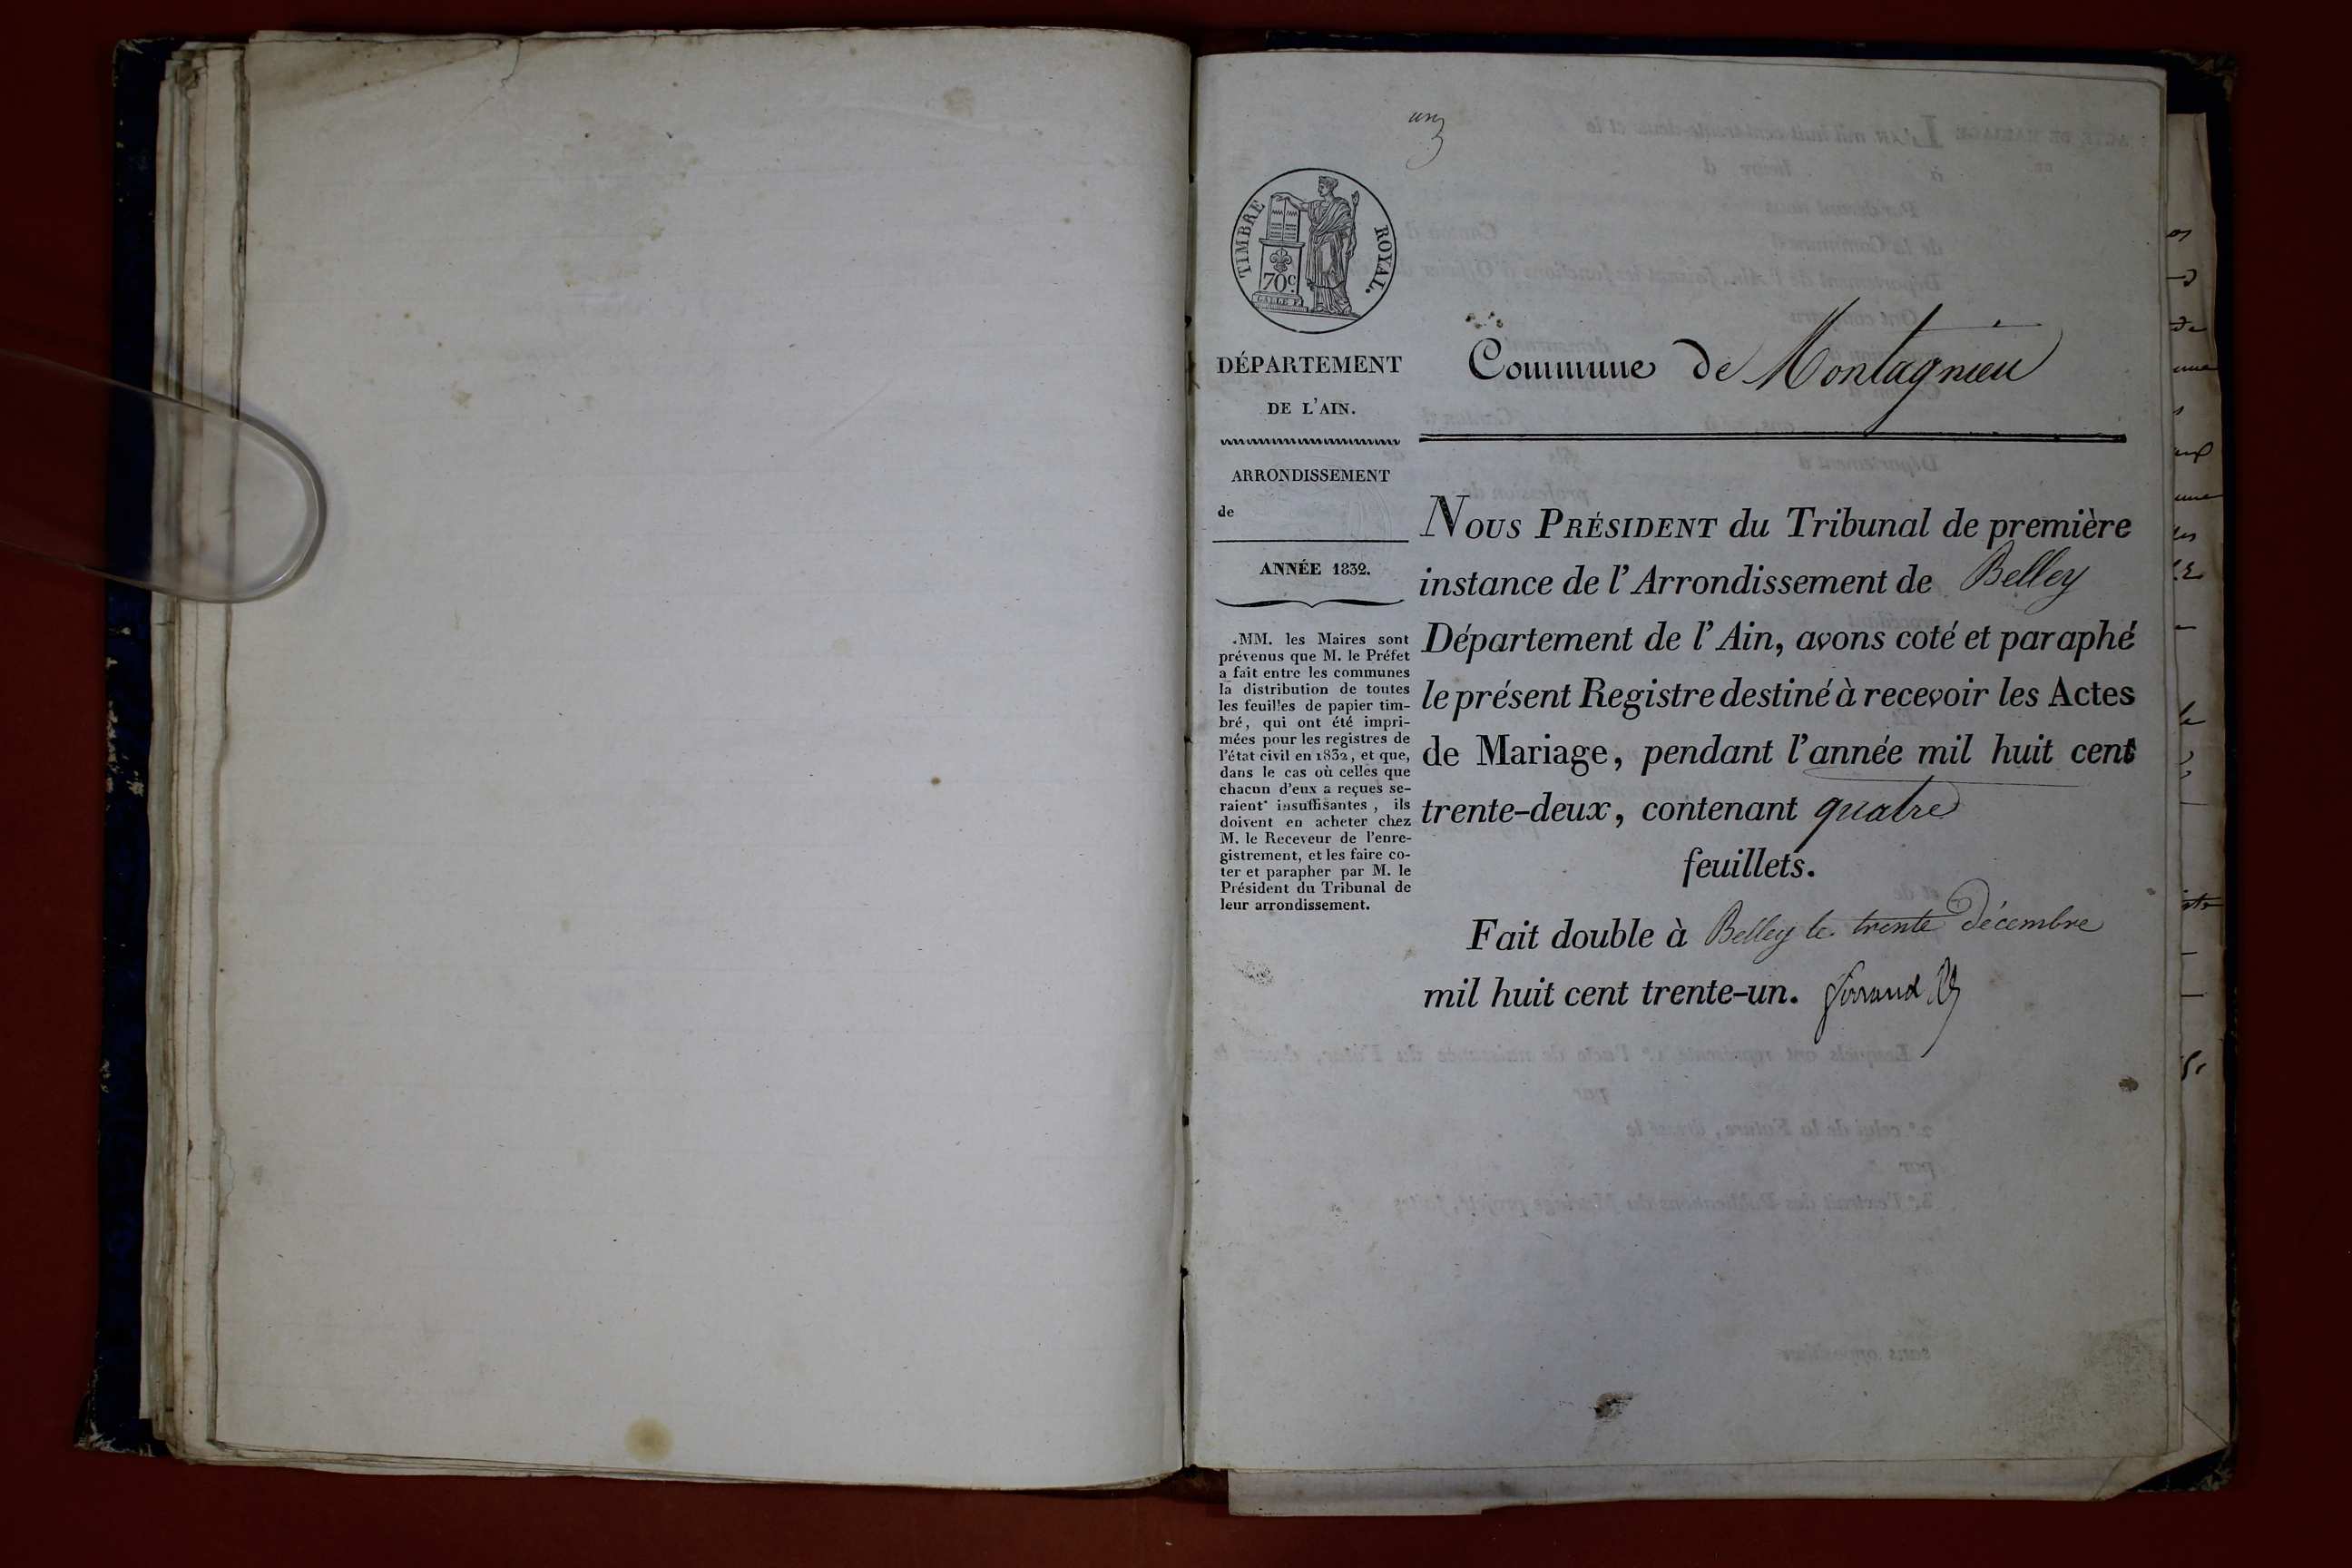 un
TIMBRE ROYAL.
70 c.
GALLE F.
DÉPARTEMENT
DE L'AIN.
ARRONDISSEMENT
de
ANNÉE 1832.
.MM. les Maires sont
prévenus que M. le Préfet
a fait entre les communes
la distribution de toutes
les feuilles de papier tim-
bré, qui ont été impri-
mées pour les registres de
l'état civil en 1832, et que,
dans le cas où celles que
chacun d'eux a reçues se-
raient insuffisantes, ils
doivent en acheter chez
M. le Receveur de l'enre-
gistrement, et les faire co-
ter et parapher par M. le
Président du Tribunal de
leur arrondissement.
Commune de Montagnieu
NOUS PRÉSIDENT du Tribunal de première
instance de l'Arrondissement de Belley
Département de l'Ain, avons coté et paraphé
le présent Registre destiné à recevoir les Actes
de Mariage, pendant l'année mil huit cent
trente-deux, contenant quatre
feuillets.
Fait double à Belley le trente décembre
mil huit cent trente-un.